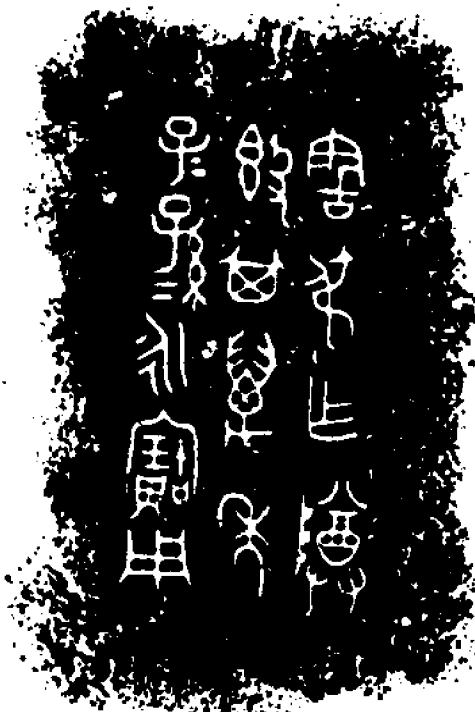 害叔乍尊
𣪘其萬年
子＝孫＝永寶用